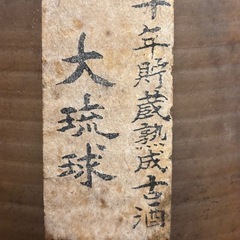 十年貯蔵熟成古酒
大琉球